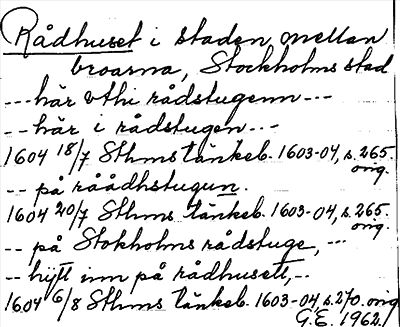 Rådhuset i staden mellan
broarna, Stockholms stad
---här uthi rådstugenn---
--här i rådstugen---
1604 18/7 Sthms tänkeb. 1603-04, s. 265.
orig.
-- på råådhstugun.
1604 20/7 Sthms tänkeb. 1603-04, s. 265.
orig.
-- på Stokholms rådstuge, ---
-- hijtt inn på rådhusett, --
1604 6/8 Sthms tänkeb. 1603-04, s. 270. orig
G.E. 1962.